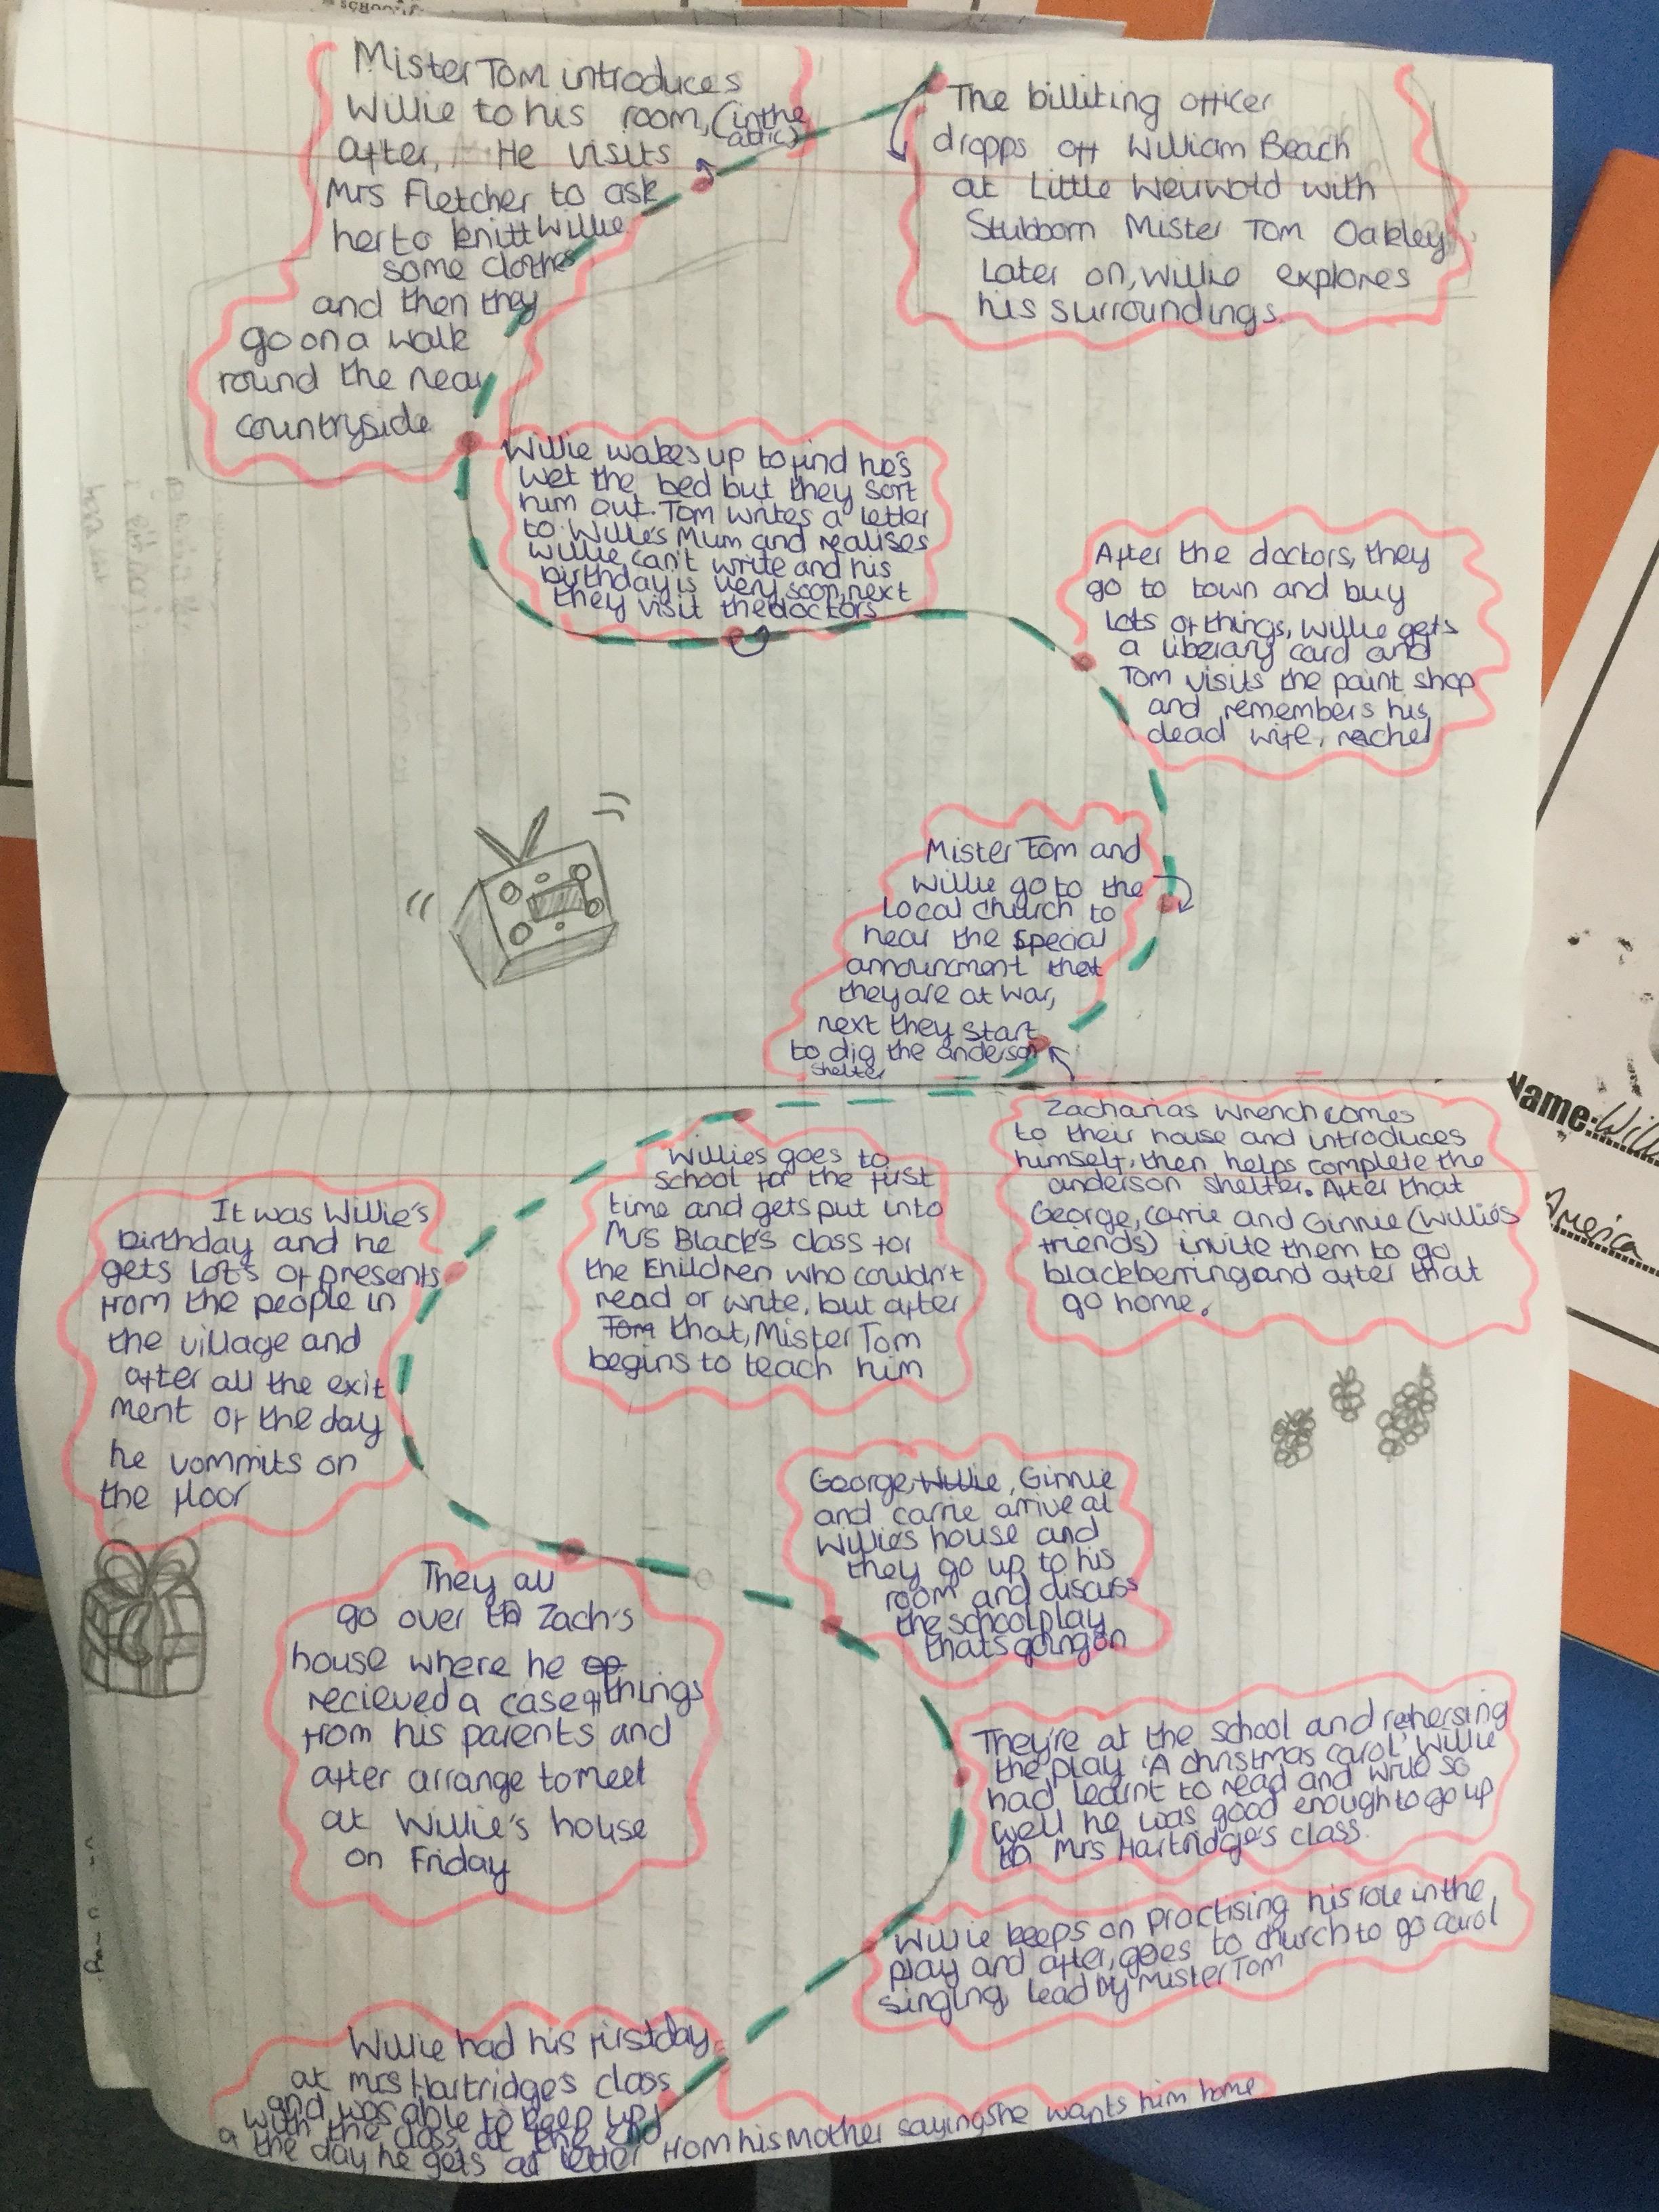 SCHOOL
The billiting officer
dropps off William Beach
at Little Weirwold with
Stubborn Mister Tom Oakley
Later on, Willie explores
his surroundings.
Mister Tom introduces
Willie to his room, (in the
attic)
after, He visits
Mrs Fletcher to ask
her to knitt Willie
some clothes
and then they
go on a walk
round the near
countryside
Willie wakes up to find he's
wet the bed but they sort
him out. Tom writes a letter
to Willie's Mum and realises
Willie can't write and his
birthday is very soon, next
they visit the doctors
After the doctors, they
go to town and buy
Lots of things, Willie gets
a liberary card and
Tom visits the paint shop
and remembers his
dead wife, rachel
Mister Tom and
Willie go to the
Local church to
hear the special
announcment that
they are at war,
next they start
to dig the anderson
shelter
Zacharias Wrench comes
to their house and introduces
himself, then helps complete the
anderson shelter. After that
George, Carrie and Ginnie (Willie's
friends) invite them to go
blackberring and after that
go home.
Willies goes to
School for the first
time and gets put into
Mrs Black's class for
the children who couldn't
read or write, but after
Tom that, Mister Tom
begins to teach him
It was Willie's
birthday and he
gets Lots of presents
from the people in
the village and
after all the exit
ment of the day
he vommits on
the floor
They all
go over to Zach's
house where he op
recieved a case of things
from his parents and
after arrange to meet
at Willie's house
on Friday
George, Willie, Ginnie
and carrie arrive at
Willie's house and
they go up to his
room and discuss
the school play
thats going on
They're at the school and rehersing
the play 'A christmas carol' Willie
had learnt to read and write so
well he was good enough to go up
to Mrs Hartridge's class.
Willie keeps on practising his role in the
play and after, goes to church to go carol
singing, lead by Mister Tom
Willie had his first day
at Mrs Hartridge's class
and was able to keep up
with the class at the end
a the day he gets a letter from his Mother saying she wants him home
Name:
America